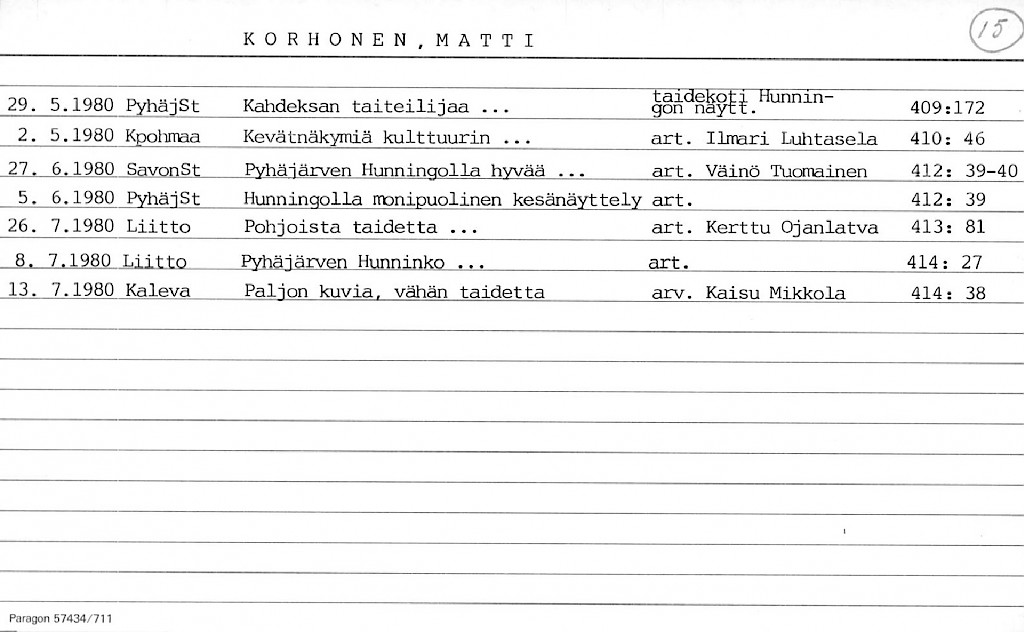 KORHONEN, MATTI
15
29. 5.1980 PyhäjSt Kahdeksan taiteilijaa ... taidekoti Hunnin-
gon näytt. 409:172
2. 5.1980 Kpohmaa Kevätnäkymiä kulttuurin ... art. Ilmari Luhtasela 410: 46
27. 6.1980 SavonSt Pyhäjärven Hunningolla hyvää ... art. Väinö Tuomainen 412: 39-40
5. 6.1980 PyhäjSt Hunningolla monipuolinen kesänäyttely art. 412: 39
26. 7.1980 Liitto Pohjoista taidetta ... art. Kerttu Ojanlatva 413: 81
8. 7.1980 Liitto Pyhäjärven Hunninko ... art. 414: 27
13. 7.1980 Kaleva Paljon kuvia, vähän taidetta arv. Kaisu Mikkola 414: 38
Paragon 57434/711